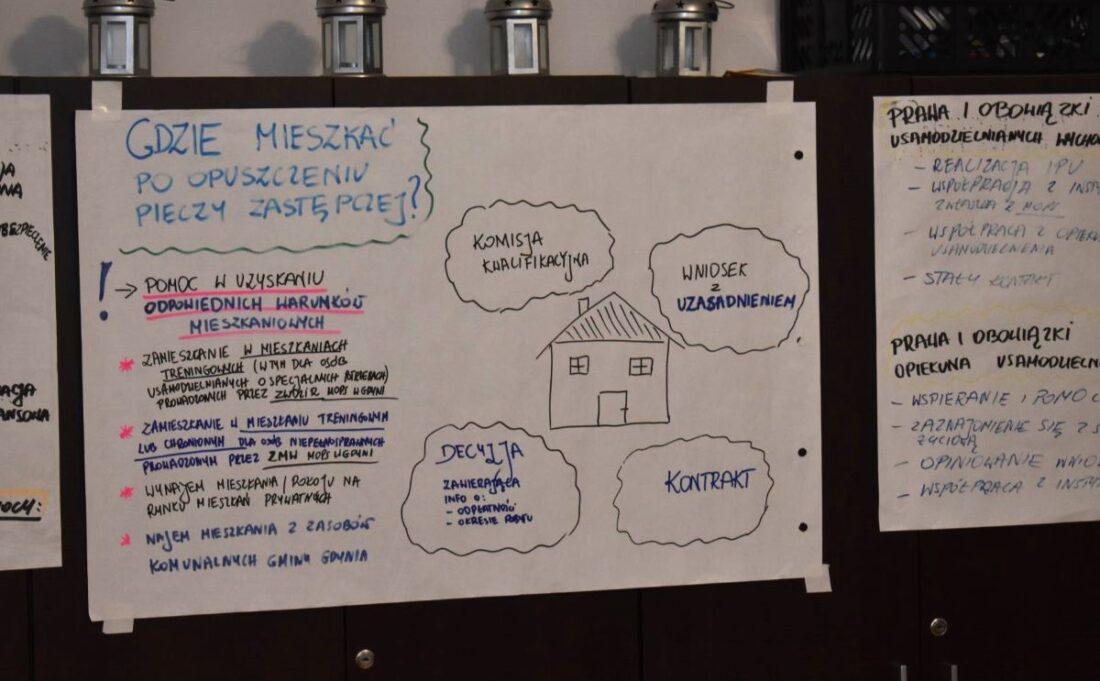 JA
BEZPIECZENIE
ACJA
ANSOWA
OCY:
GDZIE MIESZKAĆ
PO OPUSZCZENIU
PIECZY ZASTĘPCZEJ?
! → POMOC W UZYSKANIU
ODPOWIEDNICH WARUNKÓW
MIESZKANIOWYCH
* ZAMIESZKANIE W MIESZKANIACH
TRENINGOWYCH (W TYM DLA OSÓB
USAMODZIELNIANYCH O SPECJALNYCH POTRZEBACH)
PROWADZONYCH PRZEZ MOPS W GDYNI
* ZAMIESZKANIE W MIESZKANIU TRENINGOWYM
LUB CHRONIONYM DLA OSÓB NIEPEŁNOSPRAWNYCH
PROWADZONYM PRZEZ ZMW MOPS W GDYNI
* WYNAJEM MIESZKANIA / POKOJU NA
RYNKU MIESZKAŃ PRYWATNYCH
* NAJEM MIESZKANIA Z ZASOBÓW
KOMUNALNYCH GMINY GDYNIA
KOMISJA
KWALIFIKACYJNA
WNIOSEK
Z
UZASADNIENIEM
DECYZJA
ZAWIERAJĄCA
INFO O:
- ODPŁATNOŚĆ
- OKRESIE POBYTU
KONTRAKT
PRAWA I OBOWIĄZKI
USAMODZIELNIANYCH WYCHO
- REALIZACJA IPU
- WSPÓŁPRACA Z INST
ZWŁASZCZA Z MOPS
- WSPÓŁPRACA Z OPIEK
USAMODZIELNIENIA
- STAŁY KONTAKT
PRAWA I OBOWIĄZKI
OPIEKUNA USAMODZIELN
- WSPIERANIE I POMOC
- ZAZNAJOMIENIE SIĘ Z S
- OPINIOWANIE WNIO
- WSPÓŁPRACA Z INSTY